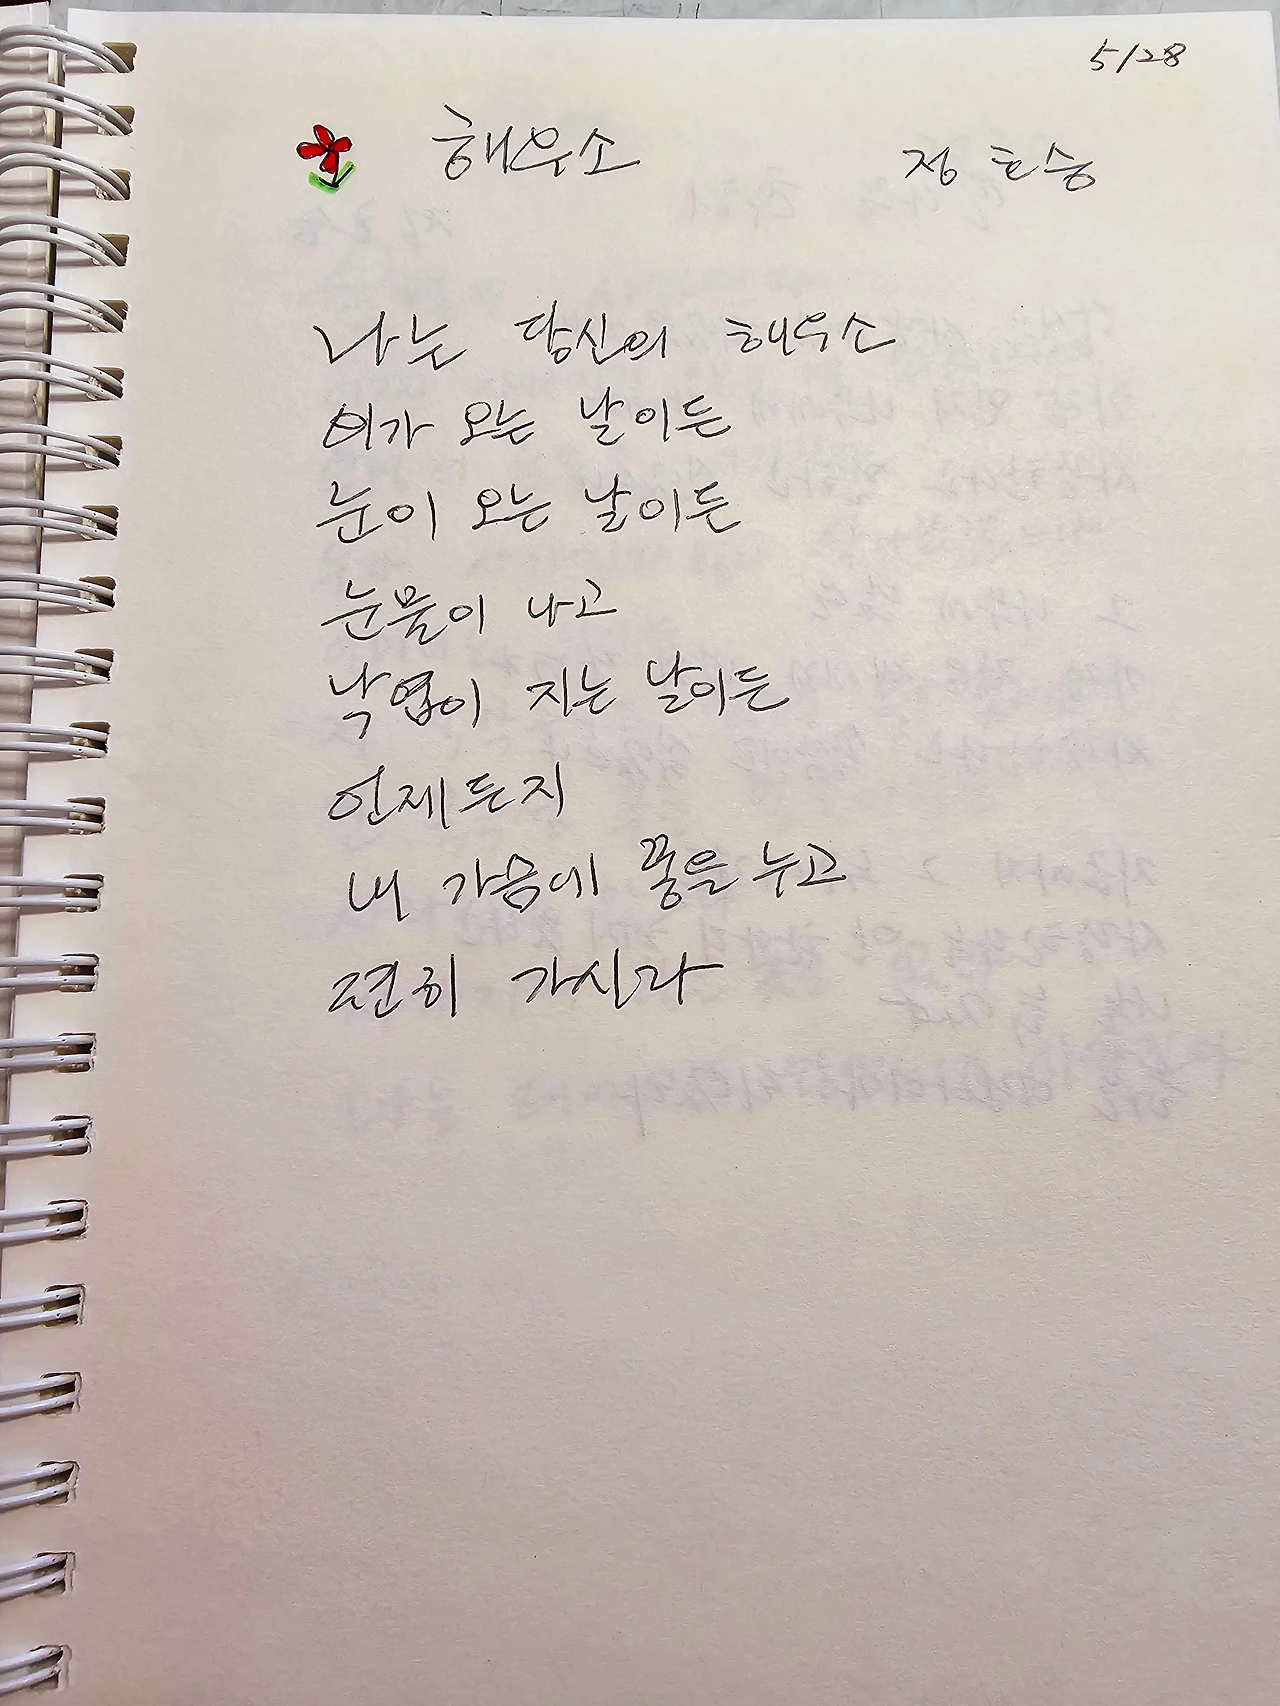 5/28
해우소 정호승
나는 당신의 해우소
비가 오는 날이든
눈이 오는 날이든
눈물이 나고
낙엽이 지는 날이든
언제든지
내 가슴에 똥을 누고
편히 가시라